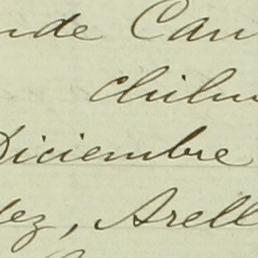 nde Can
chihu
Diciembre
dez, Arell